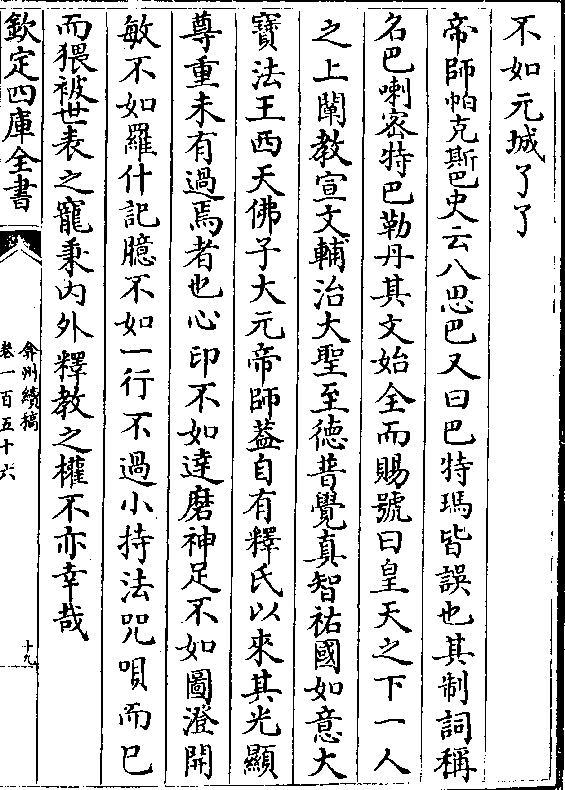 不如元城了了
帝師帕克斯巴史云八思巴又曰巴特瑪皆誤也其制詞稱
名巴喇密特巴勒丹其文始全而賜號曰皇天之下一人
之上闡教宣文輔治大聖至德普覺真智祐國如意大
寶法王西天佛子大元帝師葢自有釋氏以來其光顯
尊重未有過焉者也心印不如達磨神足不如圖澄開
敏不如羅什記臆不如一行不過小持法咒唄而已
而猥被世表之寵秉內外釋教之權不亦幸哉
欽定四庫全書
弇州續稿
卷一百五十六
十九